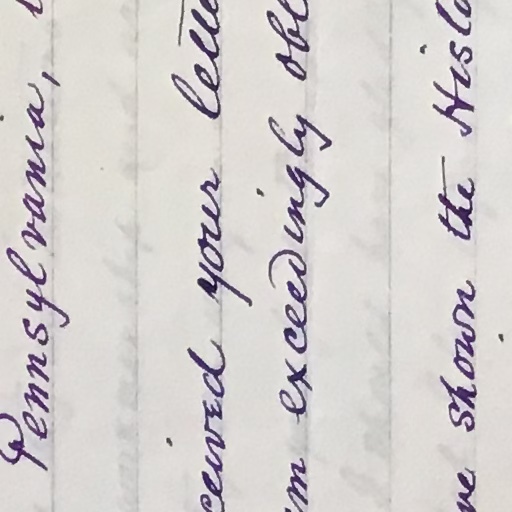 Pennsylvania,
ceived your lette
am exceedingly obl
ve shown the Histo